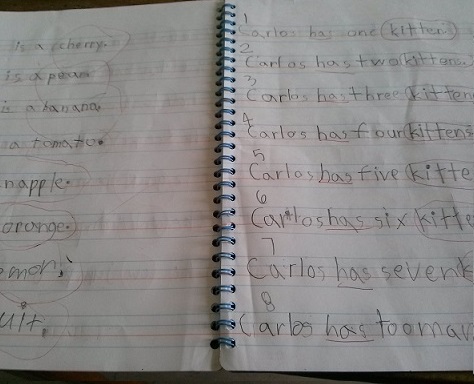 is a cherry.
is a pear.
is a banana.
a tomato.
napple.
orange.
emon.
uit.
1
Carlos has one kitten.
2
Carlos has two kittens.
3
Carlos has three kitten
4
Carlos has four kittens
5
Carlos has five kitte
6
Carlos has six kitte
7
Carlos has seven k
8
Carlos has too man